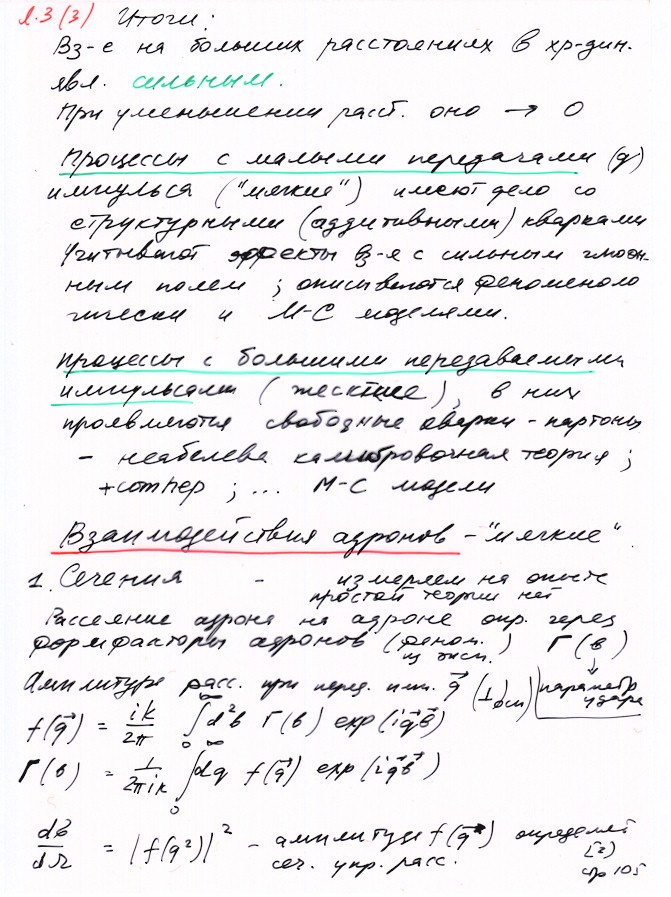 Л.3 (3) Итоги:
Вз-е на больших расстояниях в хр-дин.
явл. сильным.
При уменьшении расст. оно → 0
Процессы с малыми передачами (q)
импульса ("мягкие") имеют дело со
структурными (аддитивными) кварками
Учитывают эффекты вз-я с сильным глюон-
ным полем; описываются феноменоло
гически и М-С моделями.
Процессы с большими передаваемыми
импульсами (жесткие), в них
проявляются свободные кварки - партоны
- неабелева калибровочная теория;
; ... М-С модели
Взаимодействия адронов - "мягкие".
1. Сечения - измеряем на опыте
простой теории нет
Рассеяние адрона на адроне опр. через
формфакторы адронов (феном. из эксп.) Γ(в)
Амплитуда расс. при перед. имп. q⃗ (⊥ оси) параметр удара
f(q⃗) = ik/2π ∫₀^∞ d²в Γ(в) exp(iq⃗в⃗)
Γ(в) = 1/2πik ∫₀^∞ dq f(q⃗) exp(iq⃗в⃗)
dσ/dΩ = |f(q²)|² - амплитуда f(q⃗) определяет
сеч. упр. расс. [2] стр 105